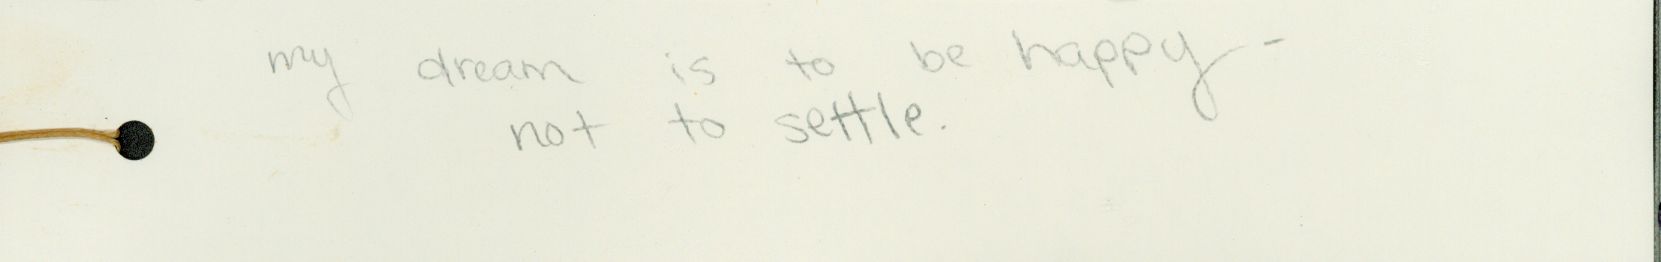 my dream is to be happy-
not to settle.